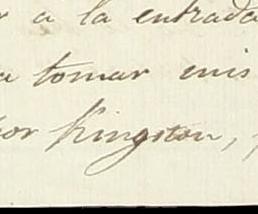 r a la entrada
a tomar mis
or Kingston,